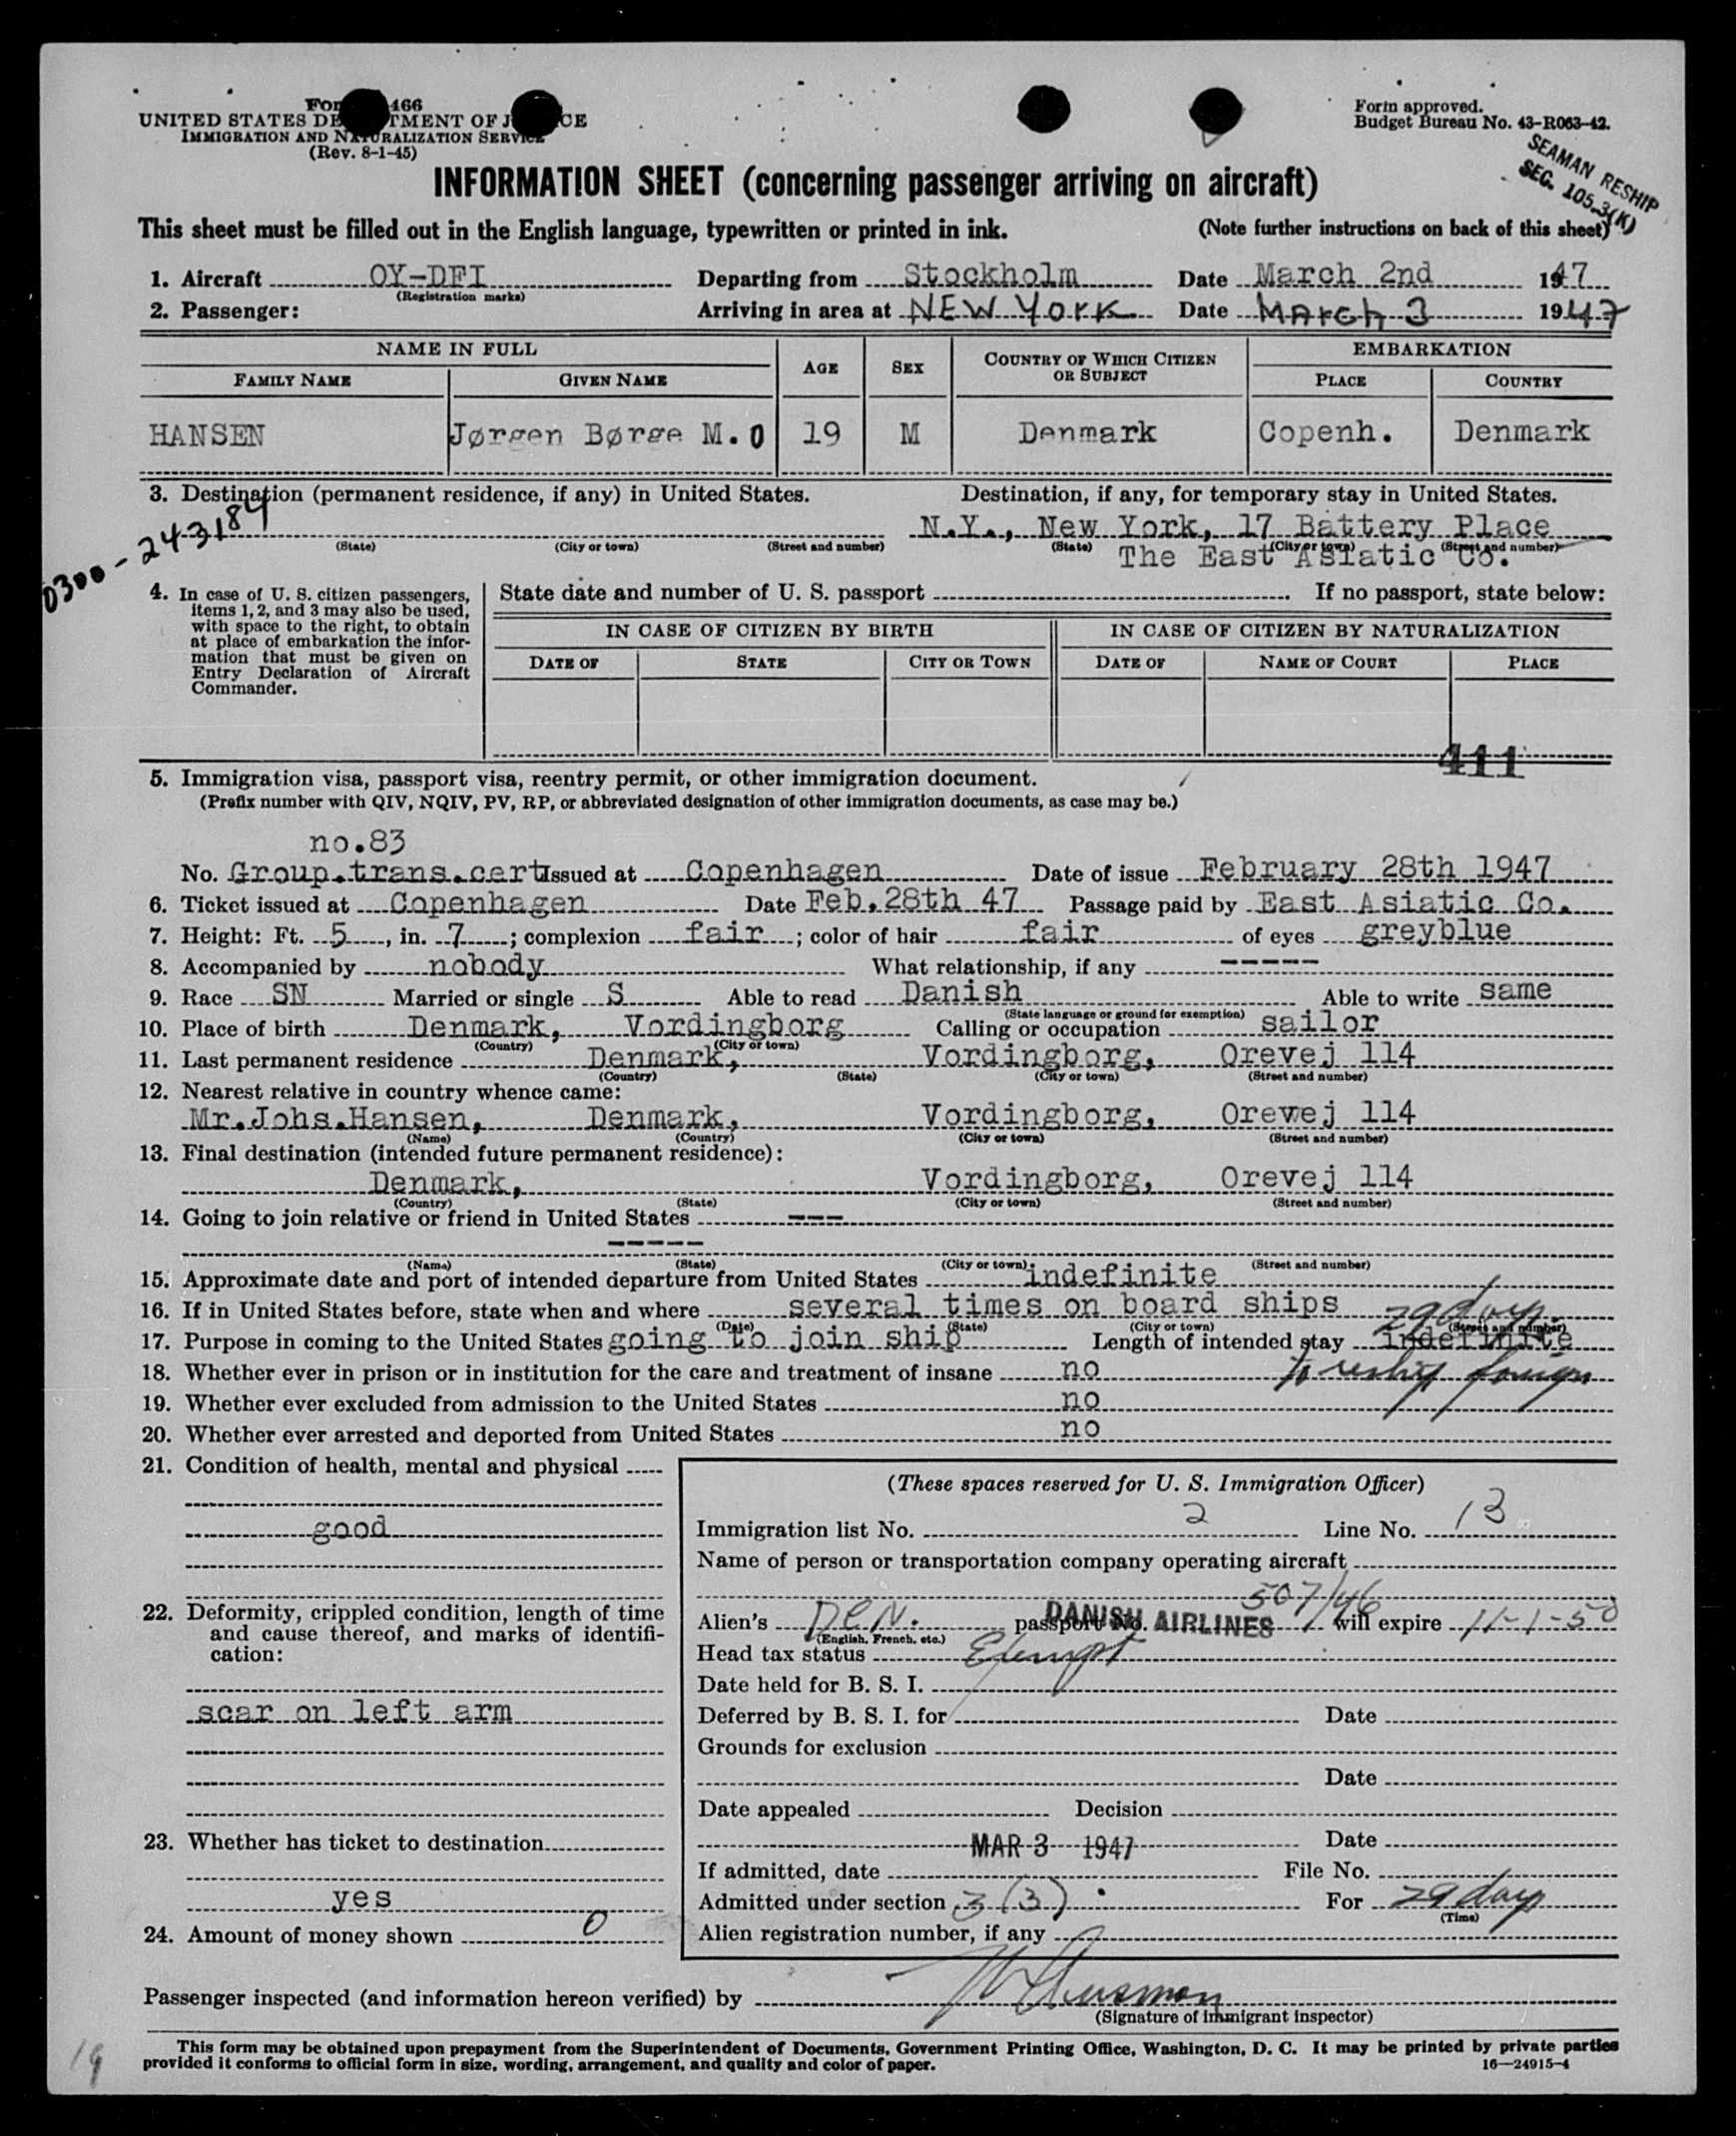 For 466
UNITED STATES DE TMENT OF J CE
IMMIGRATION AND NATURALIZATION SERVICE
(Rev. 8-1-45)
Form approved.
Budget Bureau No. 43-R063-42.
SEAMAN RESHIP
SEC. 105-3(K)
INFORMATION SHEET (concerning passenger arriving on aircraft)
This sheet must be filled out in the English language, typewritten or printed in ink. (Note further instructions on back of this sheet)
1. Aircraft OY-DFI Departing from Stockholm Date March 2nd 1947
(Registration marks)
2. Passenger: Arriving in area at NEW YORK Date MARCH 3 1947
NAME IN FULL AGE SEX COUNTRY OF WHICH CITIZEN OR SUBJECT EMBARKATION
FAMILY NAME GIVEN NAME PLACE COUNTRY
HANSEN Jørgen Børge M. O 19 M Denmark Copenh. Denmark
3. Destination (permanent residence, if any) in United States. Destination, if any, for temporary stay in United States.
0300-243184
N.Y., New York, 17 Battery Place
(State) (City or town) (Street and number) (State) (City or town) (Street and number)
The East Asiatic Co.
4. In case of U. S. citizen passengers, items 1, 2, and 3 may also be used, with space to the right, to obtain at place of embarkation the information that must be given on Entry Declaration of Aircraft Commander.
State date and number of U. S. passport If no passport, state below:
IN CASE OF CITIZEN BY BIRTH IN CASE OF CITIZEN BY NATURALIZATION
DATE OF STATE CITY OR TOWN DATE OF NAME OF COURT PLACE
411
5. Immigration visa, passport visa, reentry permit, or other immigration document.
(Prefix number with QIV, NQIV, PV, RP, or abbreviated designation of other immigration documents, as case may be.)
no.83
No. Group.trans.cert Issued at Copenhagen Date of issue February 28th 1947
6. Ticket issued at Copenhagen Date Feb.28th 47 Passage paid by East Asiatic Co.
7. Height: Ft. 5, in. 7; complexion fair; color of hair fair of eyes greyblue
8. Accompanied by nobody What relationship, if any -----
9. Race SN Married or single S Able to read Danish Able to write same
(State language or ground for exemption)
10. Place of birth Denmark, Vordingborg Calling or occupation sailor
(Country) (City or town)
11. Last permanent residence Denmark, Vordingborg, Orevej 114
(Country) (State) (City or town) (Street and number)
12. Nearest relative in country whence came:
Mr.Johs.Hansen, Denmark, Vordingborg, Orewej 114
(Name) (Country) (City or town) (Street and number)
13. Final destination (intended future permanent residence):
Denmark, Vordingborg, Orevej 114
(Country) (State) (City or town) (Street and number)
14. Going to join relative or friend in United States ---
-----
(Name) (State) (City or town) (Street and number)
15. Approximate date and port of intended departure from United States indefinite
16. If in United States before, state when and where several times on board ships
(Date) (State) (City or town) (Street and number)
29 days
17. Purpose in coming to the United States going to join ship Length of intended stay indefinite
to reship foreign
18. Whether ever in prison or in institution for the care and treatment of insane no
19. Whether ever excluded from admission to the United States no
20. Whether ever arrested and deported from United States no
21. Condition of health, mental and physical
good
22. Deformity, crippled condition, length of time and cause thereof, and marks of identification:
scar on left arm
23. Whether has ticket to destination
yes
24. Amount of money shown 0
(These spaces reserved for U. S. Immigration Officer)
Immigration list No. 2 Line No. 13
Name of person or transportation company operating aircraft
DANISH AIRLINES
Alien's DEN. passport No. 507/46 will expire 11-1-50
(English, French, etc.)
Head tax status Exempt
Date held for B. S. I.
Deferred by B. S. I. for Date
Grounds for exclusion
Date
Date appealed Decision
Date
MAR 3 1947
If admitted, date File No.
Admitted under section 3 (3) For 29 days
(Time)
Alien registration number, if any
Passenger inspected (and information hereon verified) by
(Signature of Immigrant inspector)
This form may be obtained upon prepayment from the Superintendent of Documents, Government Printing Office, Washington, D. C. It may be printed by private parties
provided it conforms to official form in size, wording, arrangement, and quality and color of paper. 16—24915-4
19